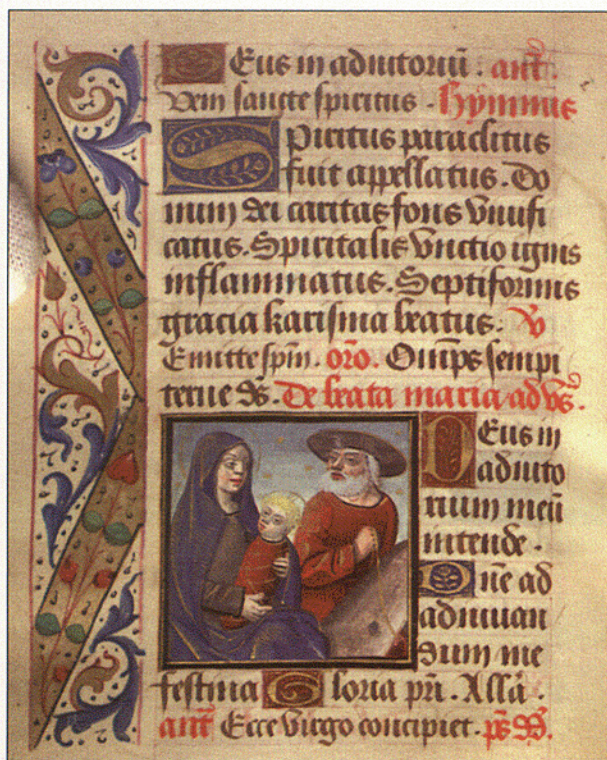 Deus in adiutoriū. añt.
Veni sancte spiritus. Hymnus
Spiritus paraclitus
fuit appellatus. Do
num dei caritas fons viuifi
catus. Spiritalis vnctio ignis
inflammatus. Septiformis
gracia karisma beatus. V
Emitte spm̄. oro. Omps sempi
terne ds. De beata maria ad vs.
Deus in
adiuto
rium meū
intende.
Dne ad
adiuuan
dum me
festina Gloria pri. Alla.
añt Ecce virgo concipiet. ps